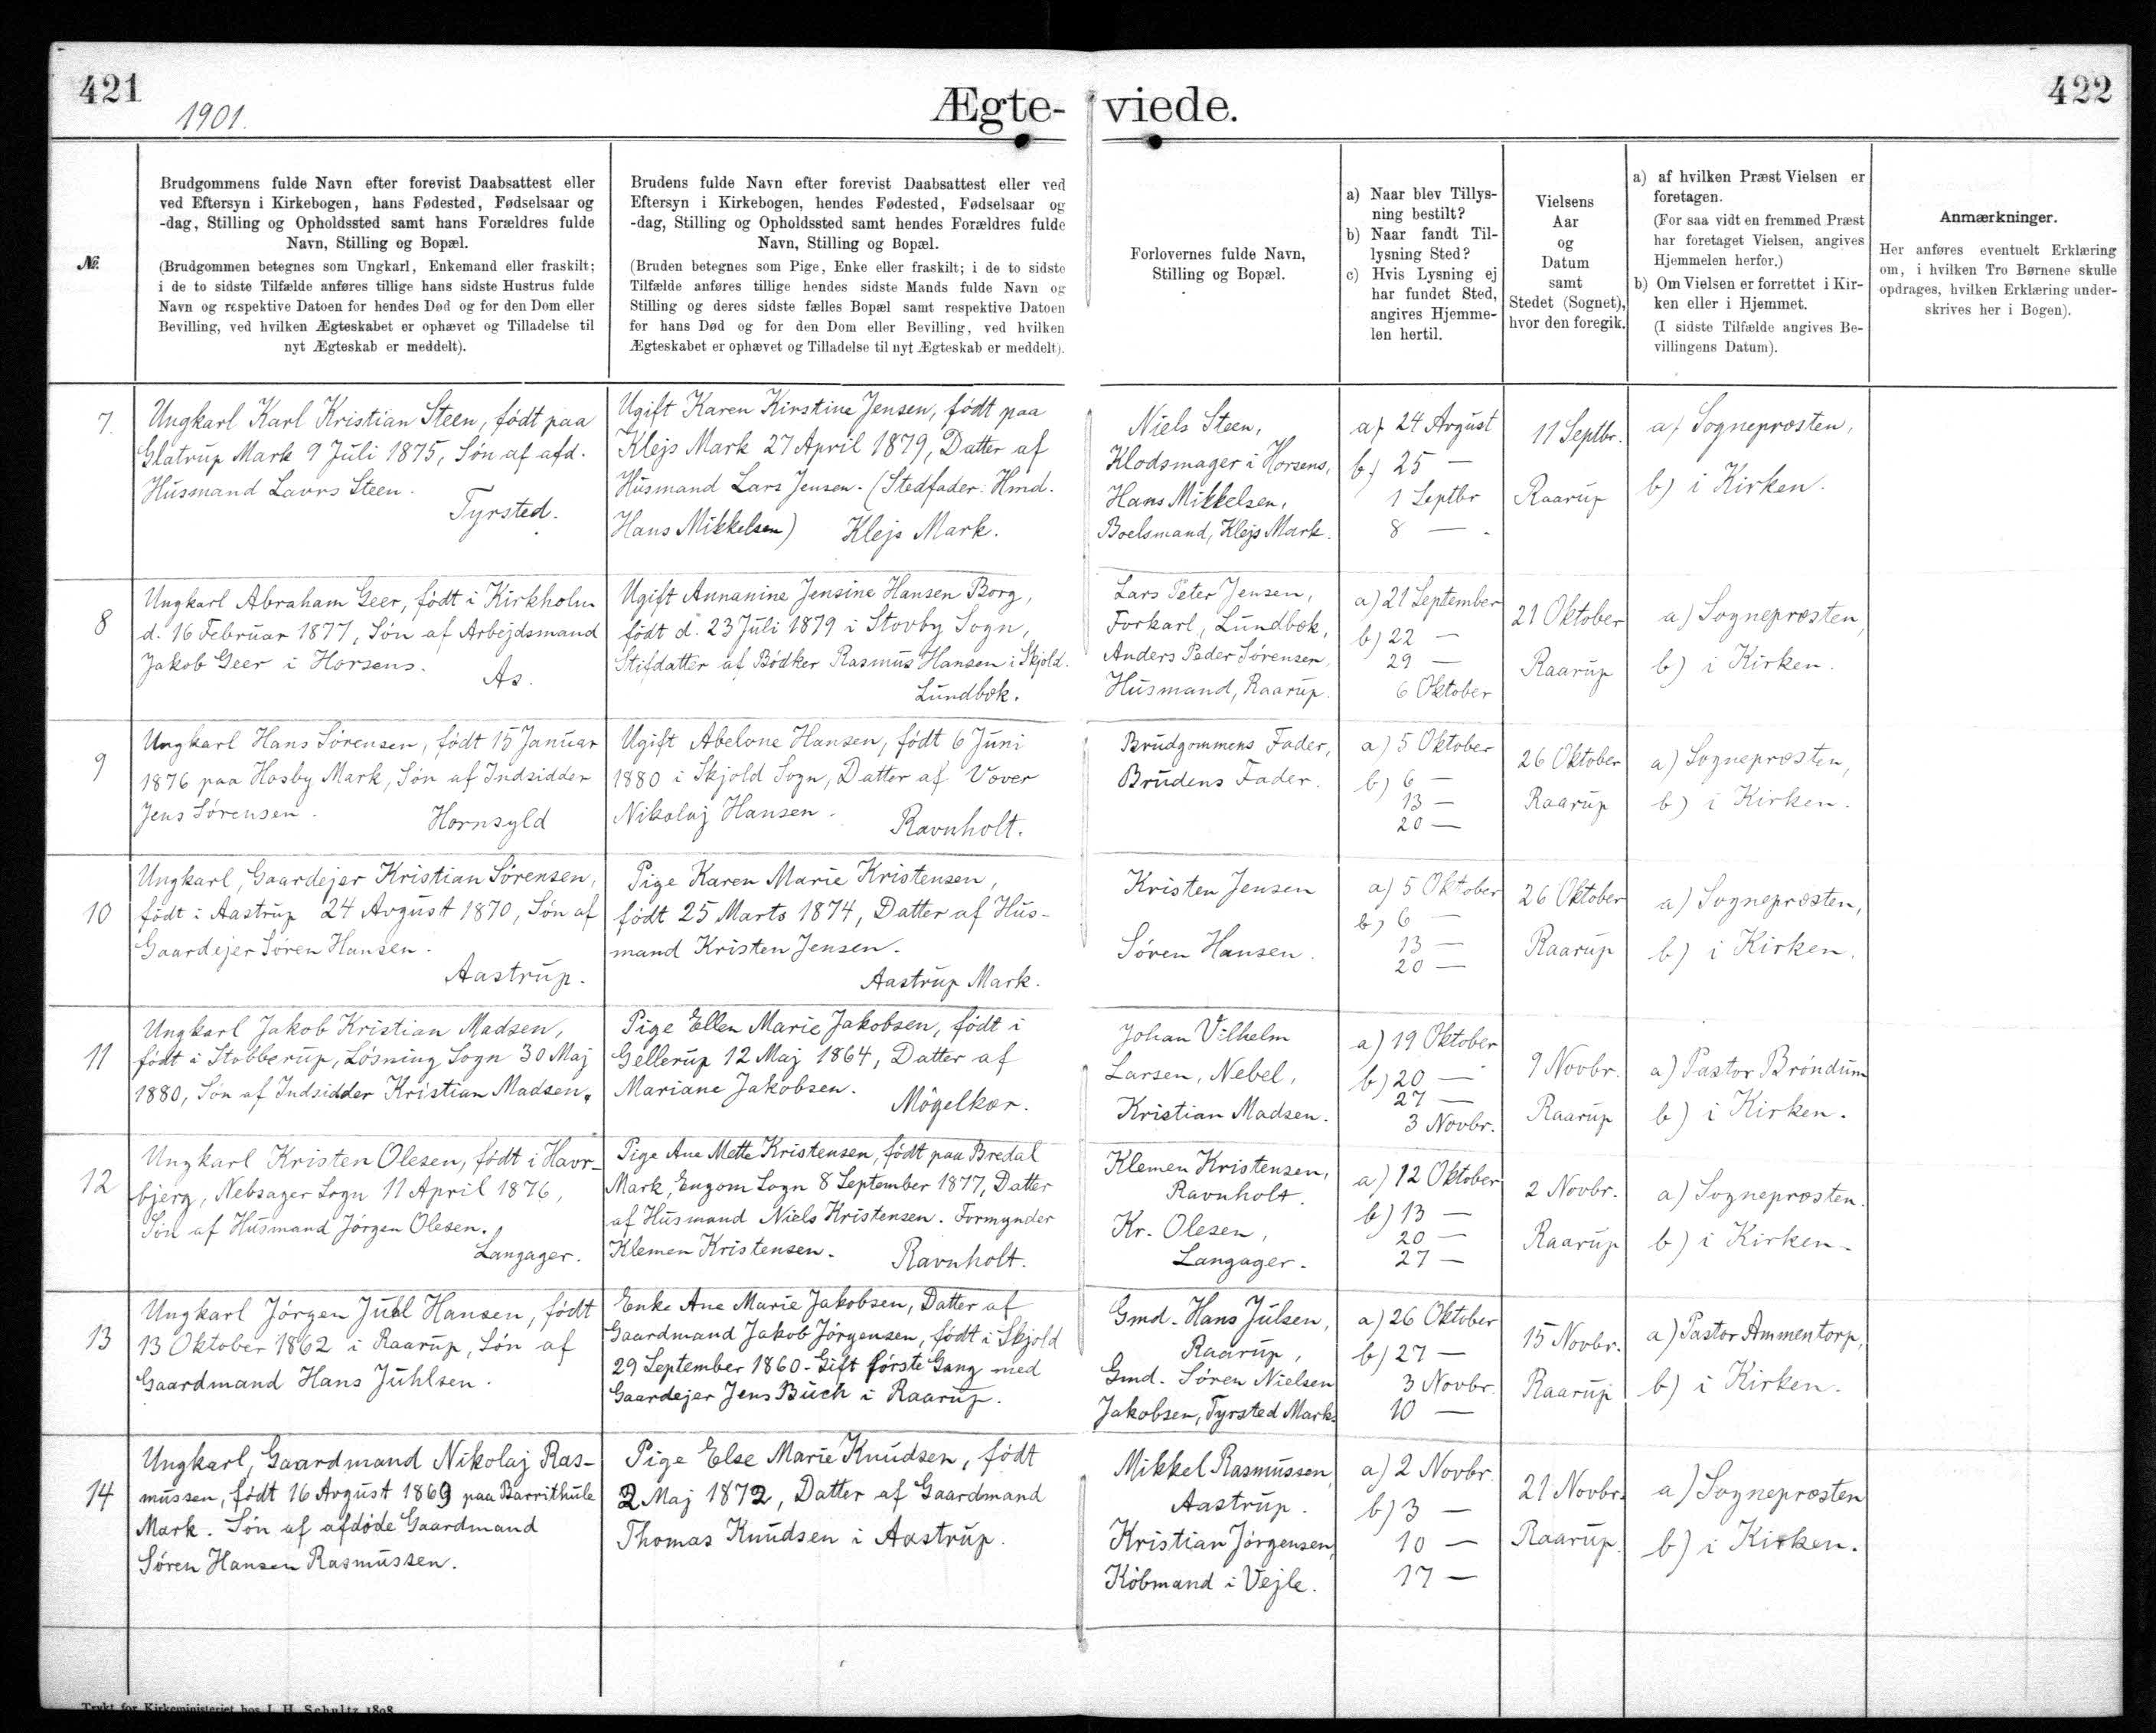 421
1901.
Ægte-
viede.
422
№.
Brudgommens fulde Navn efter forevist Daabsattest eller
ved Eftersyn i Kirkebogen, hans Fødested, Fødselsaar og
-dag, Stilling og Opholdssted samt hans Forældres fulde
Navn, Stilling og Bopæl.
(Brudgommen betegnes som Ungkarl, Enkemand eller fraskilt;
i de to sidste Tilfælde anføres tillige hans sidste Hustrus fulde
Navn og respektive Datoen for hendes Død og for den Dom eller
Bevilling, ved hvilken Ægteskabet er ophævet og Tilladelse til
nyt Ægteskab er meddelt).
Brudens fulde Navn efter forevist Daabsattest eller ved
Eftersyn i Kirkebogen, hendes Fødested, Fødselsaar og
-dag, Stilling og Opholdssted samt hendes Forældres fulde
Navn, Stilling og Bopæl.
(Bruden betegnes som Pige, Enke eller fraskilt; i de to sidste
Tilfælde anføres tillige hendes sidste Mands fulde Navn og
Stilling og deres sidste fælles Bopæl samt respektive Datoen
for hans Død og for den Dom eller Bevilling, ved hvilken
Ægteskabet er ophævet og Tilladelse til nyt Ægteskab er meddelt).
Forlovernes fulde Navn,
Stilling og Bopæl.
a) Naar blev Tillys-
ning bestilt?
b) Naar fandt Til-
lysning Sted?
c) Hvis Lysning ej
har fundet Sted,
angives Hjemme-
len hertil.
Vielsens
Aar
og
Datum
samt
Stedet (Sognet),
hvor den foregik.
a) af hvilken Præst Vielsen er
foretagen.
(For saa vidt en fremmed Præst
har foretaget Vielsen, angives
Hjemmelen herfor.)
b) Om Vielsen er forrettet i Kir-
ken eller i Hjemmet.
(I sidste Tilfælde angives Be-
villingens Datum).
Anmærkninger.
Her anføres eventuelt Erklæring
om, i hvilken Tro Børnene skulle
opdrages, hvilken Erklæring under-
skrives her i Bogen).
7.
Ungkarl Karl Kristian Steen, født paa
Glatrup Mark 9 Juli 1875, Søn af afd.
Husmand Lavrs Steen.
Tyrsted.
Ugift Karen Kirstine Jensen, født paa
Klejs Mark 27 April 1879, Datter af
Husmand Lars Jensen. (Stedfader: Hmd.
Hans Mikkelsen) Klejs Mark.
Niels Steen,
Klodsmager i Horsens,
Hans Mikkelsen,
Boelsmand, Klejs Mark.
a) 24 Avgust
b) 25 —
1 Septbr
8 —
11 Septbr.
Raarup
a) Sognepræsten,
b) i Kirken.
8
Ungkarl Abraham Geer, født i Kirkholm
d. 16 Februar 1877, Søn af Arbejdsmand
Jakob Geer i Horsens.
As.
Ugift Annanine Jensine Hansen Borg,
født d. 23 Juli 1879 i Stovby Sogn,
Stifdatter af Bødker Rasmus Hansen i Skjold.
Lundbæk.
Lars Peter Jensen,
Forkarl, Lundbæk,
Anders Peder Sørensen,
Husmand, Raarup.
a) 21 September
b) 22 —
29 —
6 Oktober
21 Oktober
Raarup
a) Sognepræsten,
b) i Kirken.
9
Ungkarl Hans Sørensen, født 15 Januar
1876 paa Hosby Mark, Søn af Indsidder
Jens Sørensen.
Hornsyld
Ugift Abelone Hansen, født 6 Juni
1880 i Skjold Sogn, Datter af Væver
Nikolaj Hansen.
Ravnholt.
Brudgommens Fader,
Brudens Fader.
a) 5 Oktober
b) 6 —
13 —
20 —
26 Oktober
Raarup
a) Sognepræsten,
b) i Kirken.
10
Ungkarl, Gaardejer Kristian Sørensen,
født i Aastrup 24 Avgust 1870, Søn af
Gaardejer Søren Hansen.
Aastrup.
Pige Karen Marie Kristensen,
født 25 Marts 1874, Datter af Hus-
mand Kristen Jensen.
Aastrup Mark.
Kristen Jensen
Søren Hansen.
a) 5 Oktober
b) 6 —
13 —
20 —
26 Oktober
Raarup
a) Sognepræsten,
b) i Kirken.
11
Ungkarl Jakob Kristian Madsen,
født i Stobberup, Løsning Sogn 30 Maj
1880, Søn af Indsidder Kristian Madsen.
Pige Ellen Marie Jakobsen, født i
Gellerup 12 Maj 1864, Datter af
Mariane Jakobsen.
Møgelkær.
Johan Vilhelm
Larsen, Nebel,
Kristian Madsen.
a) 19 Oktober
b) 20 —
27 —
3 Novbr.
9 Novbr.
Raarup
a) Pastor Brøndum
b) i Kirken.
12
Ungkarl Kristen Olesen, født i Havr-
bjerg, Nebsager Sogn 11 April 1876,
Søn af Husmand Jørgen Olesen.
Langager.
Pige Ane Mette Kristensen, født paa Bredal
Mark, Engom Sogn 8 September 1877, Datter
af Husmand Niels Kristensen. Formynder
Klemen Kristensen. Ravnholt.
Klemen Kristensen,
Ravnholt.
Kr. Olesen,
Langager.
a) 12 Oktober
b) 13 —
20 —
27 —
2 Novbr.
Raarup
a) Sognepræsten.
b) i Kirken.
13
Ungkarl Jørgen Juhl Hansen, født
13 Oktober 1862 i Raarup, Søn af
Gaardmand Hans Juhlsen.
Enke Ane Marie Jakobsen, Datter af
Gaardmand Jakob Jørgensen, født i Skjold
29 September 1860. Gift første Gang med
Gaardejer Jens Buch i Raarup.
Gmd. Hans Julsen,
Raarup,
Gmd. Søren Nielsen
Jakobsen, Tyrsted Mark.
a) 26 Oktober
b) 27 —
3 Novbr.
10 —
15 Novbr.
Raarup
a) Pastor Ammentorp,
b) i Kirken.
14
Ungkarl, Gaardmand Nikolaj Ras-
mussen, født 16 Avgust 1869 paa Barrithule
Mark. Søn af afdøde Gaardmand
Søren Hansen Rasmussen.
Pige Else Marie Knudsen, født
2 Maj 1872, Datter af Gaardmand
Thomas Knudsen i Aastrup.
Mikkel Rasmussen,
Aastrup.
Kristian Jørgensen,
Købmand i Vejle.
a) 2 Novbr.
b) 3 —
10 —
17 —
21 Novbr.
Raarup.
a) Sognepræsten
b) i Kirken.
Trykt for Kirkeministeriet hos J. H. Schultz 1898